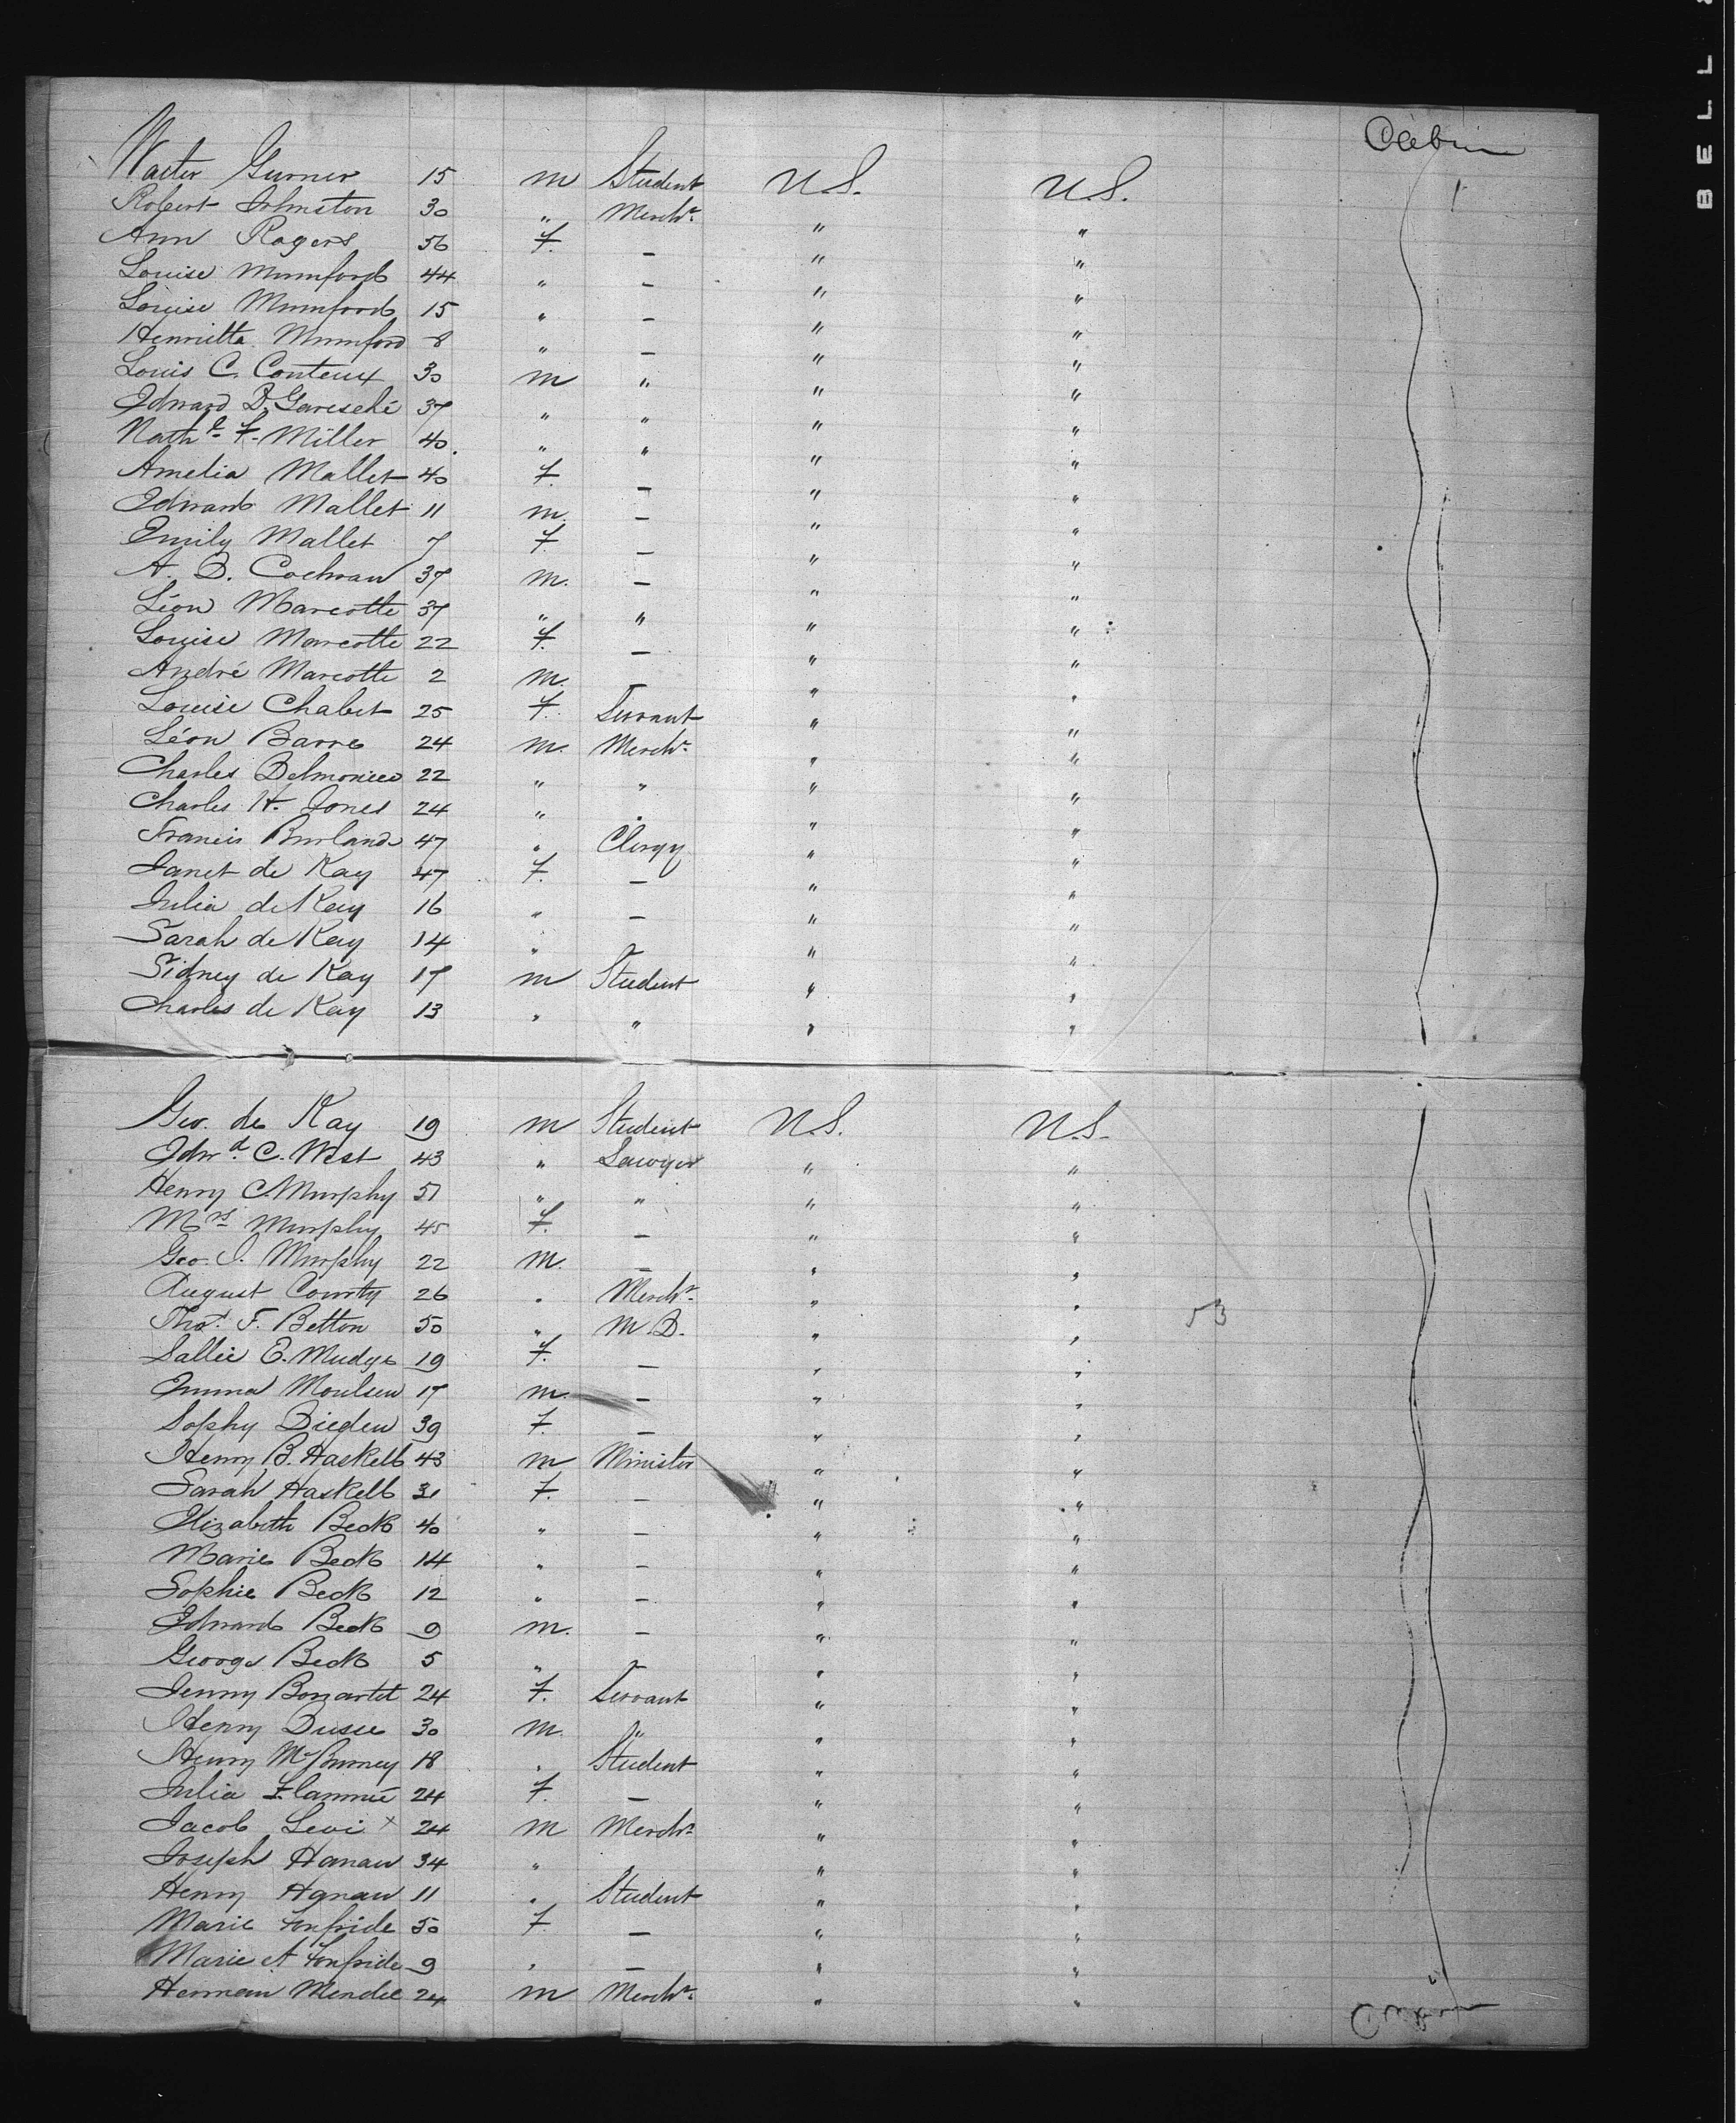 Cabin
Walter Gurner 15 m Student U.S. U.S.
Robert Johnston 30 " Mercht. " "
Ann Rogers 56 F. — " "
Louise Mumford 44 " — " "
Louise Mumford 15 " — " "
Henrietta Mumford 8 " — " "
Louis C. Conteux 30 m " " "
Edward B. Garesché 37 " " " "
Nathl. F. Miller 40. " " " "
Amelia Mallet 40 F. — " "
Edward Mallet 11 m. — " "
Emily Mallet 7 F. — " "
A. D. Cochran 37 m. — " "
Léon Marcotte 37 " " " "
Louise Marcotte 22 F. — " "
André Marcotte 2 m. — " "
Louise Chabet 25 F. Servant " "
Léon Barre 24 m. Mercht. " "
Charles Delmonico 22 " " " "
Charles H. Jones 24 " " " "
Francis Burland 47 " Clergy " "
Janet de Kay 47 F. — " "
Julia de Kay 16 " — " "
Sarah de Kay 14 " " "
Sidney de Kay 17 m Student " "
Charles de Kay 13 " " " "
Geo. de Kay 19 m Student U.S. U.S.
Edwd. C. West 43 " Lawyer " "
Henry C. Murphy 51 " " " "
Mrs Murphy 45 F. — " "
Geo. I. Murphy 22 m. — " "
August County 26 " Mercht. " " 53
Thos. F. Betton 50 " M.D. " "
Sallie E. Mudge 19 F. — " "
Emma Moulsen 17 m. — " "
Sophy Dieden 39 F. — " "
Henry B. Haskell 43 m Minister " "
Sarah Haskell 31 F. — " "
Elizabeth Beck 40 " — " "
Marie Beck 14 " — " "
Sophie Beck 12 " — " "
Edward Beck 9 m. — " "
George Beck 5 " — " "
Jenny Bonzartet 24 F. Servant " "
Henry Dusse 30 m. " " "
Henry McBurney 18 " Student " "
Julia Flammé 24 F. — " "
Jacob Levi x 24 m Mercht. " "
Joseph Hanau 34 " " " "
Henry Hanau 11 " Student " "
Marie Fonfride 50 F. — " "
Marie A Fonfride 9 " — " "
Herman Mendel 24 m Mercht. " "
BELL